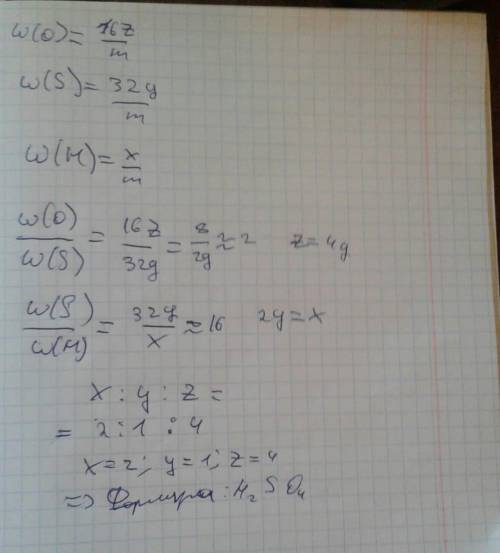 w(O) = 16z/m
w(S) = 32y/m
w(H) = x/m
w(O)/w(S) = 16z/32y = z/2y ≈ 2 z = 4y
w(S)/w(H) = 32y/x ≈ 16 2y = x
x : y : z =
= 2 : 1 : 4
x = 2; y = 1; z = 4
=> Формула: H₂SO₄